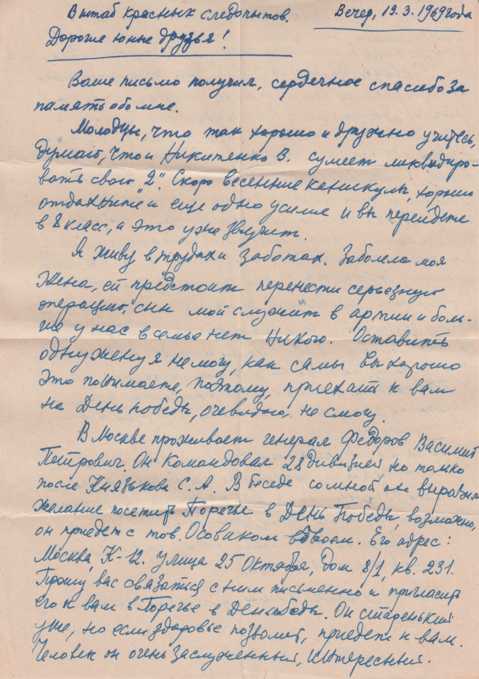 В штаб красных следопытов. Вечер, 19.3.1969 года
Дорогие юные друзья!
Ваше письмо получил, сердечное спасибо за
память обо мне.
Молодцы, что так хорошо и дружно учитесь,
думаю, что и Никитенко В. сумеет ликвидиро-
вать свою "2". Скоро весенние каникулы, хорошо
отдохните и еще одно усилие и вы перейдете
в 8 класс, а это уже звучит.
Я живу в трудах и заботах. Заболела моя
жена, ей предстоит перенести серьезную
операцию, сын мой служит в армии и боль-
ше у нас в семье нет никого. Оставить
одну жену я не могу, как самы вы хорошо
это понимаете, поэтому, приехать к вам
на День победы, очевидно не смогу.
В Москве проживает генерал Федоров Василий
Петрович. Он командовал 28 дивизией, но только
после Князькова С.А. В беседе со мной он выразил
желание посетить Поречье в День Победы, возможно,
он приедет с тов. Осовиком вдвоем. Его адрес:
Москва, К-12, улица 25 Октября, дом 8/1, кв. 231.
Прошу вас связаться с ним письменно и пригласить
его к вам в Поречье в День победы. Он старенький
уже, но если здоровье позволит, приедет к вам.
Человек он очень заслуженный, интересный.